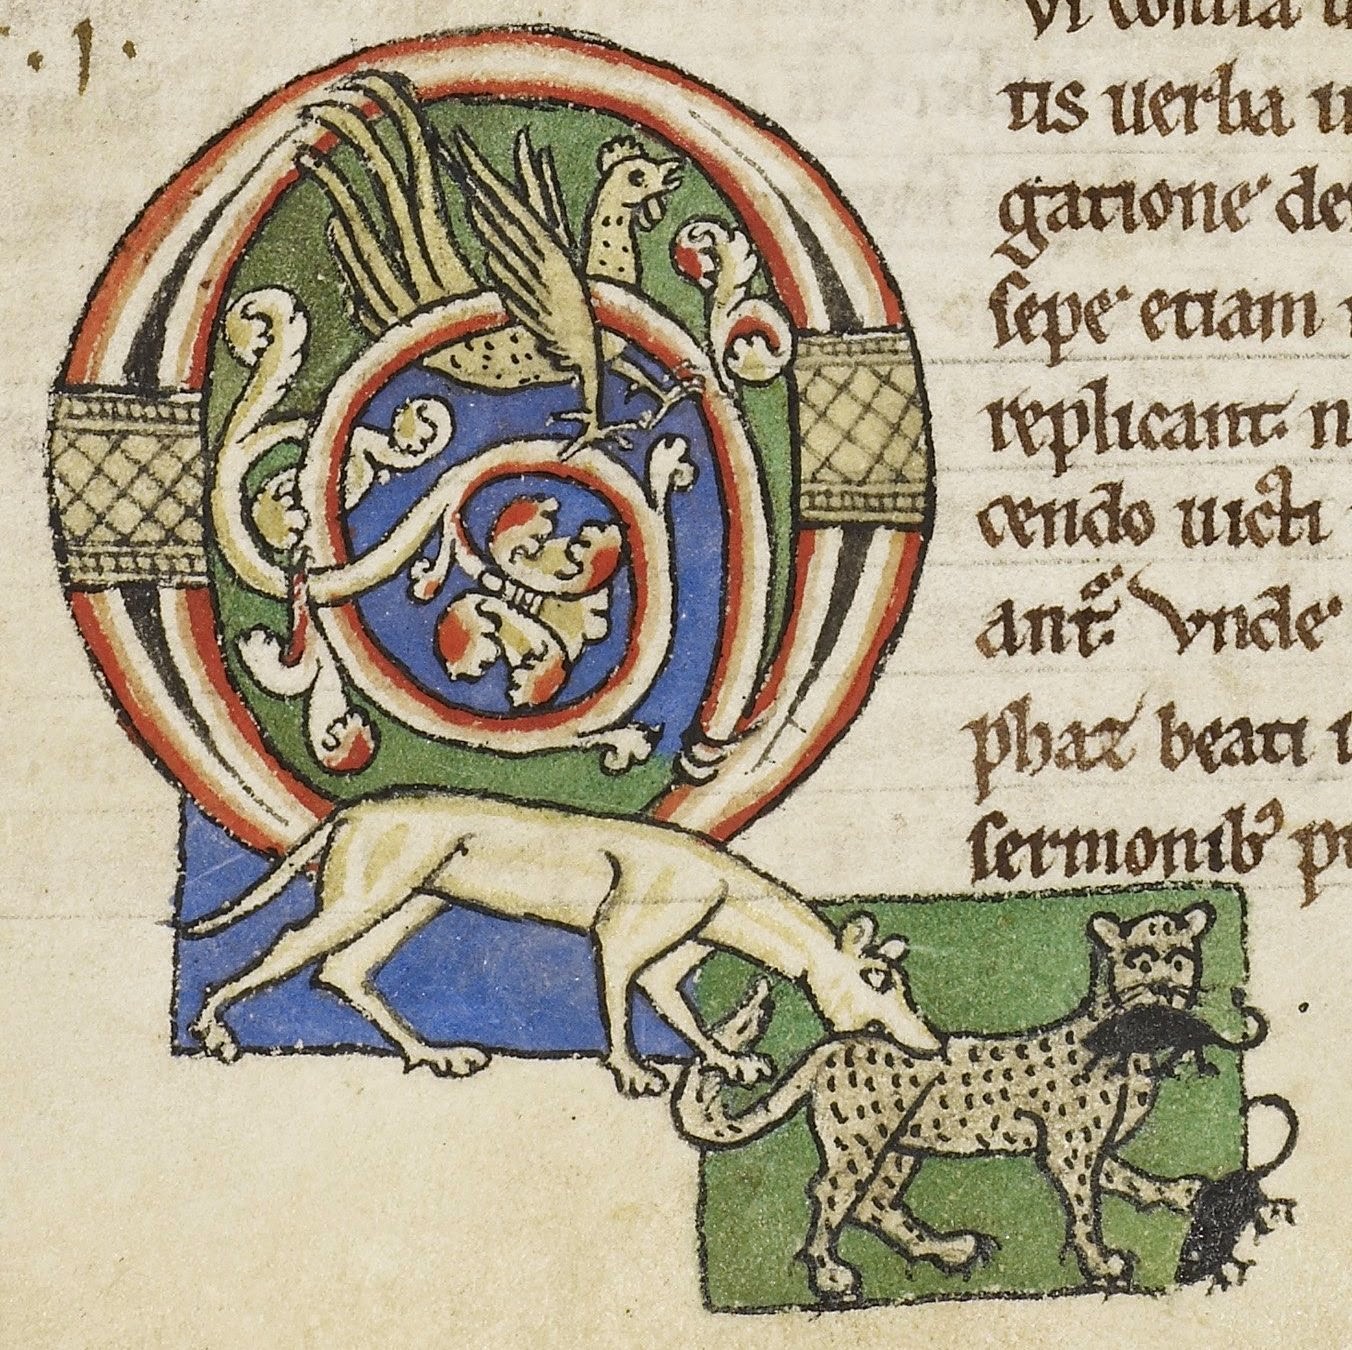 .I.
Q
tis uerba
gatione de
sepe etiam
replicant n
cendo uicti
ant. Vnde
phar beati
sermonib; p